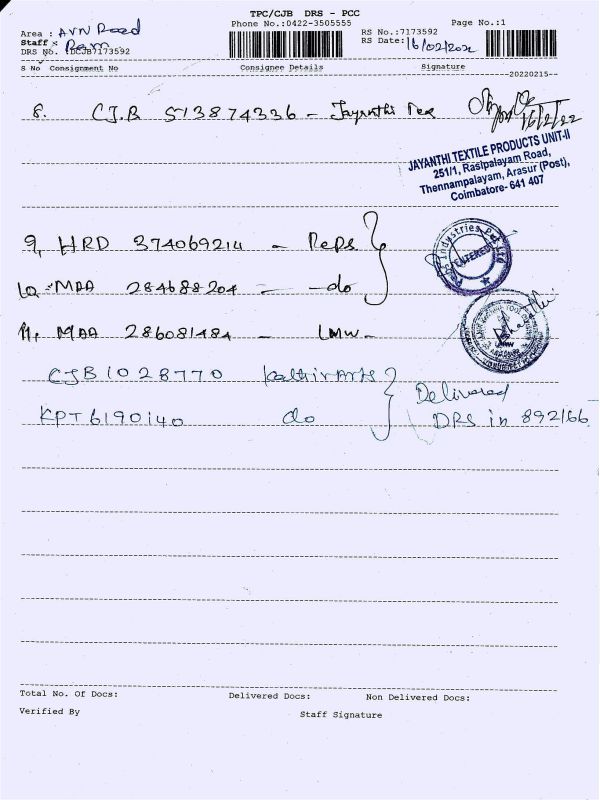 TPC/CJB DRS - PCC
Phone No.:0422-3505555
Page No.:1
Area : AVN Road
Staff : Ram
DRS No. :DCJB7173592
RS No.:7173592
RS Date: 16/02/202
S No Consignment No Consignee Details Signature
--20220215--
8. CJB 513874336 - Jayanthi Tex
16/2/22
JAYANTHI TEXTILE PRODUCTS UNIT-II
251/1, Rasipalayam Road,
Thennampalayam, Arasur (Post),
Coimbatore- 641 407
9, HRD 374069214 - Peps
Industries Pvt Ltd
ENTERED
10. MAA 284688204 - do
11. MAA 286081484 - LMW -
CJB1028770 Kathir Arts
KPT6190140 do
Delivered
DRS in 892166
Total No. Of Docs: Delivered Docs: Non Delivered Docs:
Verified By Staff Signature